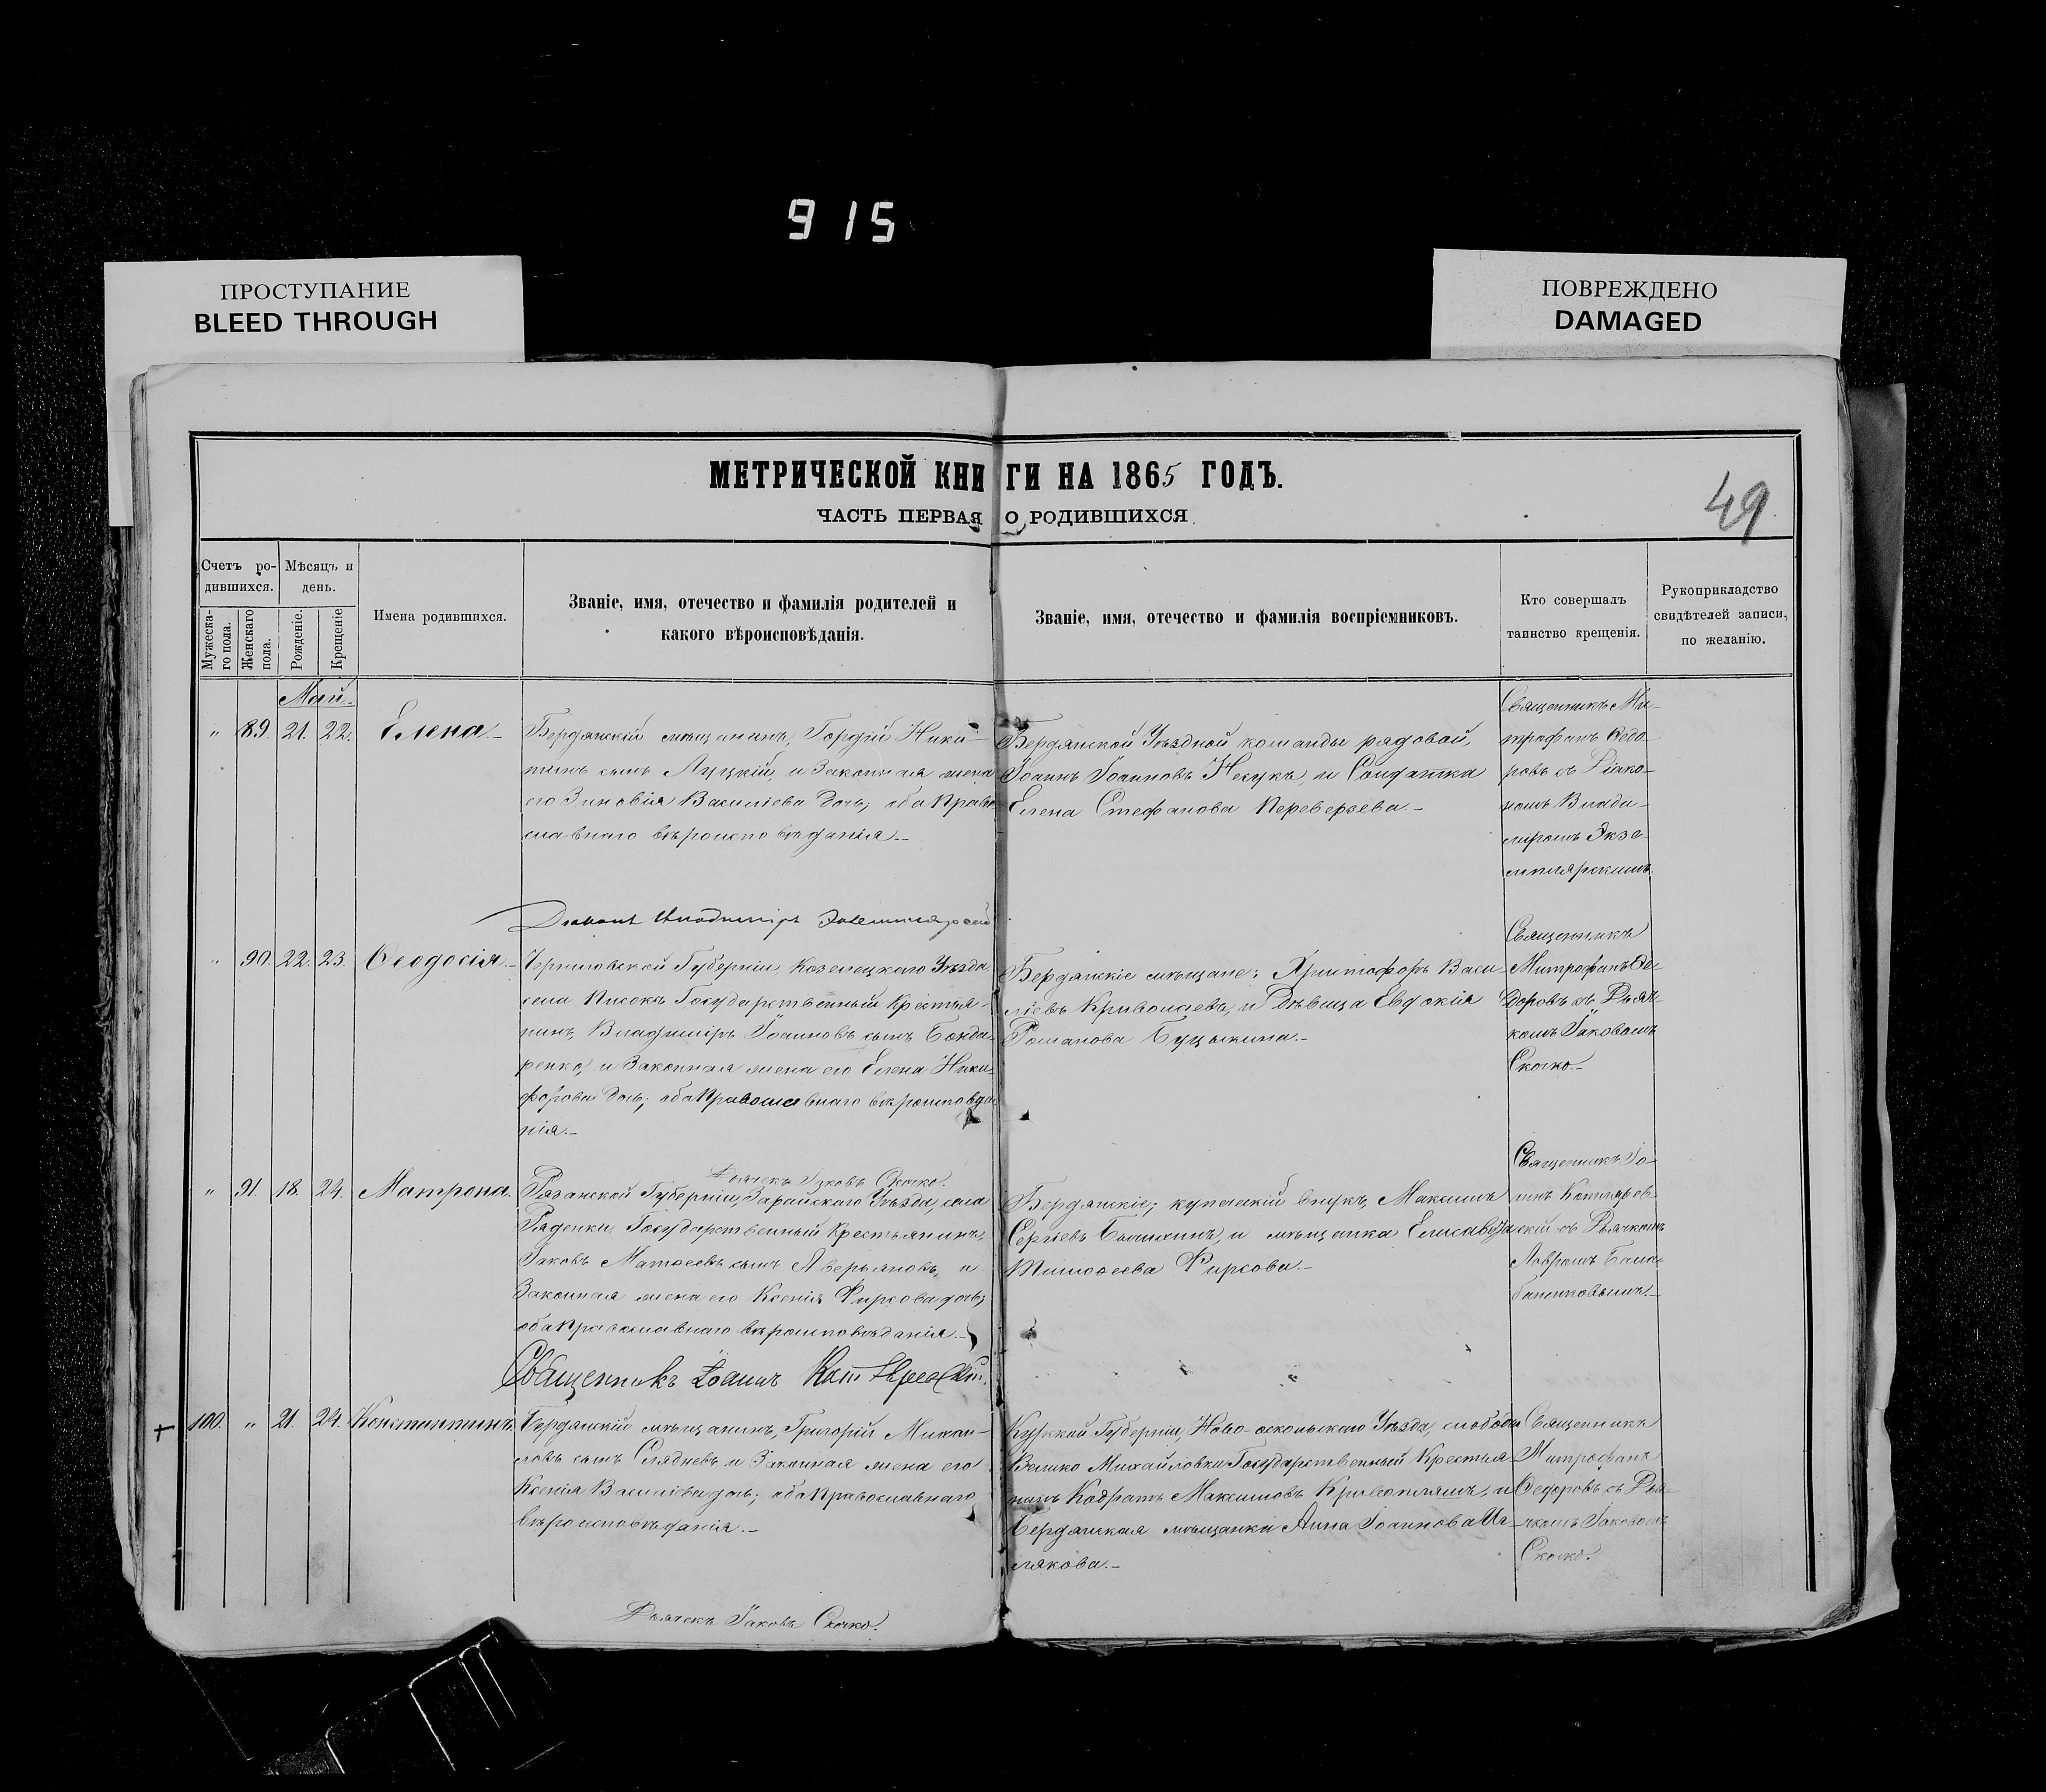 915
ПРОСТУПАНИЕ
BLEED THROUGH
ПОВРЕЖДЕНО
DAMAGED
МЕТРИЧЕСКОЙ КНИГИ НА 1865 ГОДЪ.
49
ЧАСТЬ ПЕРВАЯ О РОДИВШИХСЯ
Счетъ ро-
дившихся.
Мужеска-
го пола.
Женскаго
пола.
Мѣсяцъ и
день.
Рожденіе.
Крещеніе
Имена родившихся.
Званіе, имя, отечество и фамилія родителей и
какого вѣроисповѣданія.
Званіе, имя, отечество и фамилія воспріемниковъ.
Кто совершалъ
таинство крещенія.
Рукоприкладство
свидѣтелей записи,
по желанію.
Май
" 89. 21. 22. Елена.
Бердянскій мѣщанинъ, Гордій Ники-
тинъ сынъ Луцкій, и Законная жена
его Зиновія Василіева дочь; оба Право-
славнаго вѣроисповѣданія.
Бердянской Уѣздной команды рядовой,
Іоаннъ Іоанновъ и Солдатка
Елена Стефанова Переверзева.
Священникъ Ми-
трофанъ Ѳедо-
ровъ съ Діако-
номъ Влади-
міромъ Экзе-
мплярскимъ.
Діаконъ Владиміръ Экземплярскій
" 90. 22. 23. Ѳеодосія.
Черниговской Губерніи, Козелецкаго Уѣзда
села Государственный Крестья-
нинъ, Владиміръ Іоанновъ сынъ Бонда-
ренко, и Законная жена его Елена Ники-
форова дочь; оба Православнаго вѣроисповѣда-
нія.
Бердянскіе мѣщане: Христофоръ Васи-
ліевъ и Дѣвица Евдокія
Романова
Священникъ
Митрофанъ Ѳе-
доровъ съ Дьяч-
комъ Іаковомъ
Скочко.
Дьячекъ Іаковъ Скочко.
" 91. 18. 24. Матрона.
Рязанской Губерніи, Зарайскаго Уѣзда, села
Государственный Крестьянинъ,
Іаковъ Матѳеевъ сынъ Аверьяновъ, и
Законная жена его Ксенія Фирсова дочь;
оба Православнаго вѣроисповѣданія.
Бердянскіе; купеческій внукъ, Максимъ
Сергіевъ и мѣщанка Елисавета
Тимоѳеева Фирсова.
Священникъ Іо-
аннъ Котлярев-
скій съ Дьячкомъ
Лавромъ
Священникъ Іоаннъ Котляревскій.
100. " 21. 24. Константинъ.
Бердянскій мѣщанинъ, Григорій Михаи-
ловъ сынъ и Законная жена его
Ксенія Василіева дочь; оба Православнаго
вѣроисповѣданія.
Курской Губерніи, Ново-оскольскаго Уѣзда, слободы
Велико Михайловки Государственный Крестья-
нинъ Кодратъ Максимовъ и
Бердянская мѣщанка Анна Іоаннова
Священникъ
Митрофанъ
Ѳедоровъ съ Дья-
чкомъ Іаковомъ
Скочко.
Дьячекъ Іаковъ Скочко.